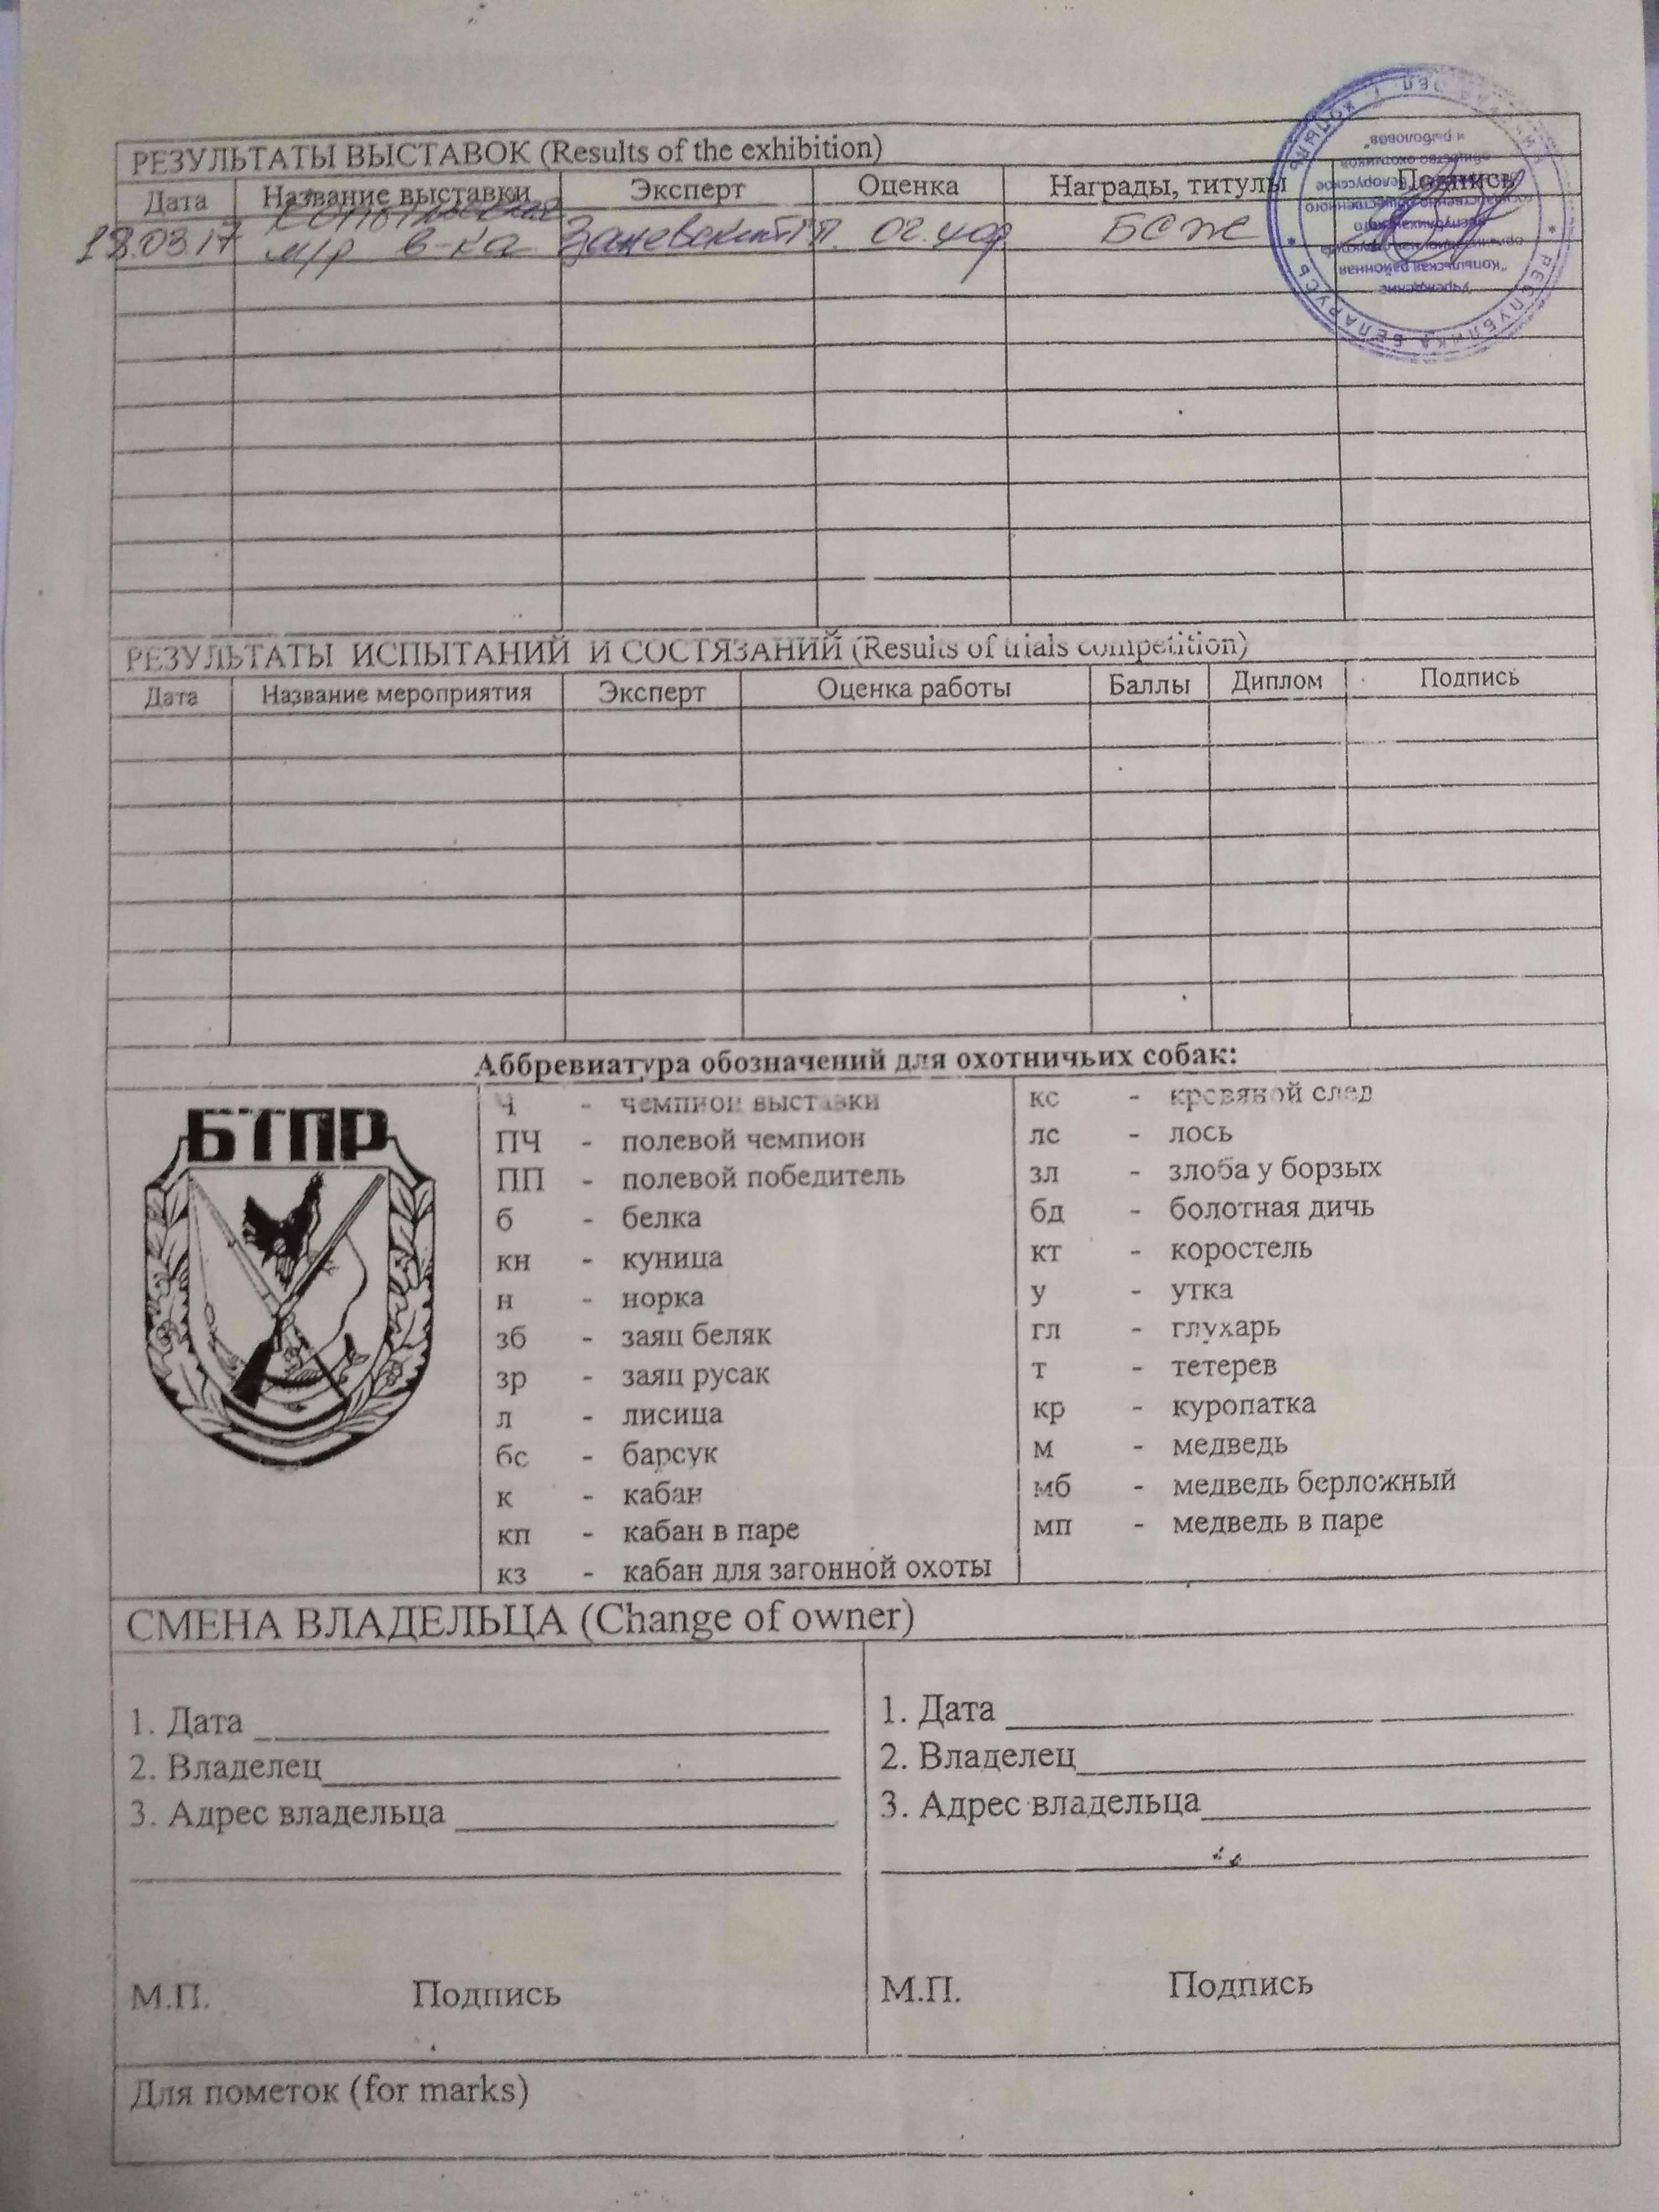 РЕЗУЛЬТАТЫ ВЫСТАВОК (Results of the exhibition)
Дата Название выставки Эксперт Оценка Награды, титулы Подпись
18.03.17 м/р в-ка оч. хор БСЖ
Учреждение
"Копыльская районная
организационная структура
республиканского
государственно-общественного
"Белорусское
общество охотников
и рыболовов"
РЕСПУБЛИКА БЕЛАРУСЬ
РЕЗУЛЬТАТЫ ИСПЫТАНИЙ И СОСТЯЗАНИЙ (Results of trials competition)
Дата Название мероприятия Эксперт Оценка работы Баллы Диплом Подпись
Аббревиатура обозначений для охотничьих собак:
БТПР
Ч - чемпион выставки
ПЧ - полевой чемпион
ПП - полевой победитель
б - белка
кн - куница
н - норка
зб - заяц беляк
зр - заяц русак
л - лисица
бс - барсук
к - кабан
кп - кабан в паре
кз - кабан для загонной охоты
кс - кровяной след
лс - лось
зл - злоба у борзых
бд - болотная дичь
кт - коростель
у - утка
гл - глухарь
т - тетерев
кр - куропатка
м - медведь
мб - медведь берложный
мп - медведь в паре
СМЕНА ВЛАДЕЛЬЦА (Change of owner)
1. Дата
2. Владелец
3. Адрес владельца
М.П. Подпись
1. Дата
2. Владелец
3. Адрес владельца
М.П. Подпись
Для пометок (for marks)